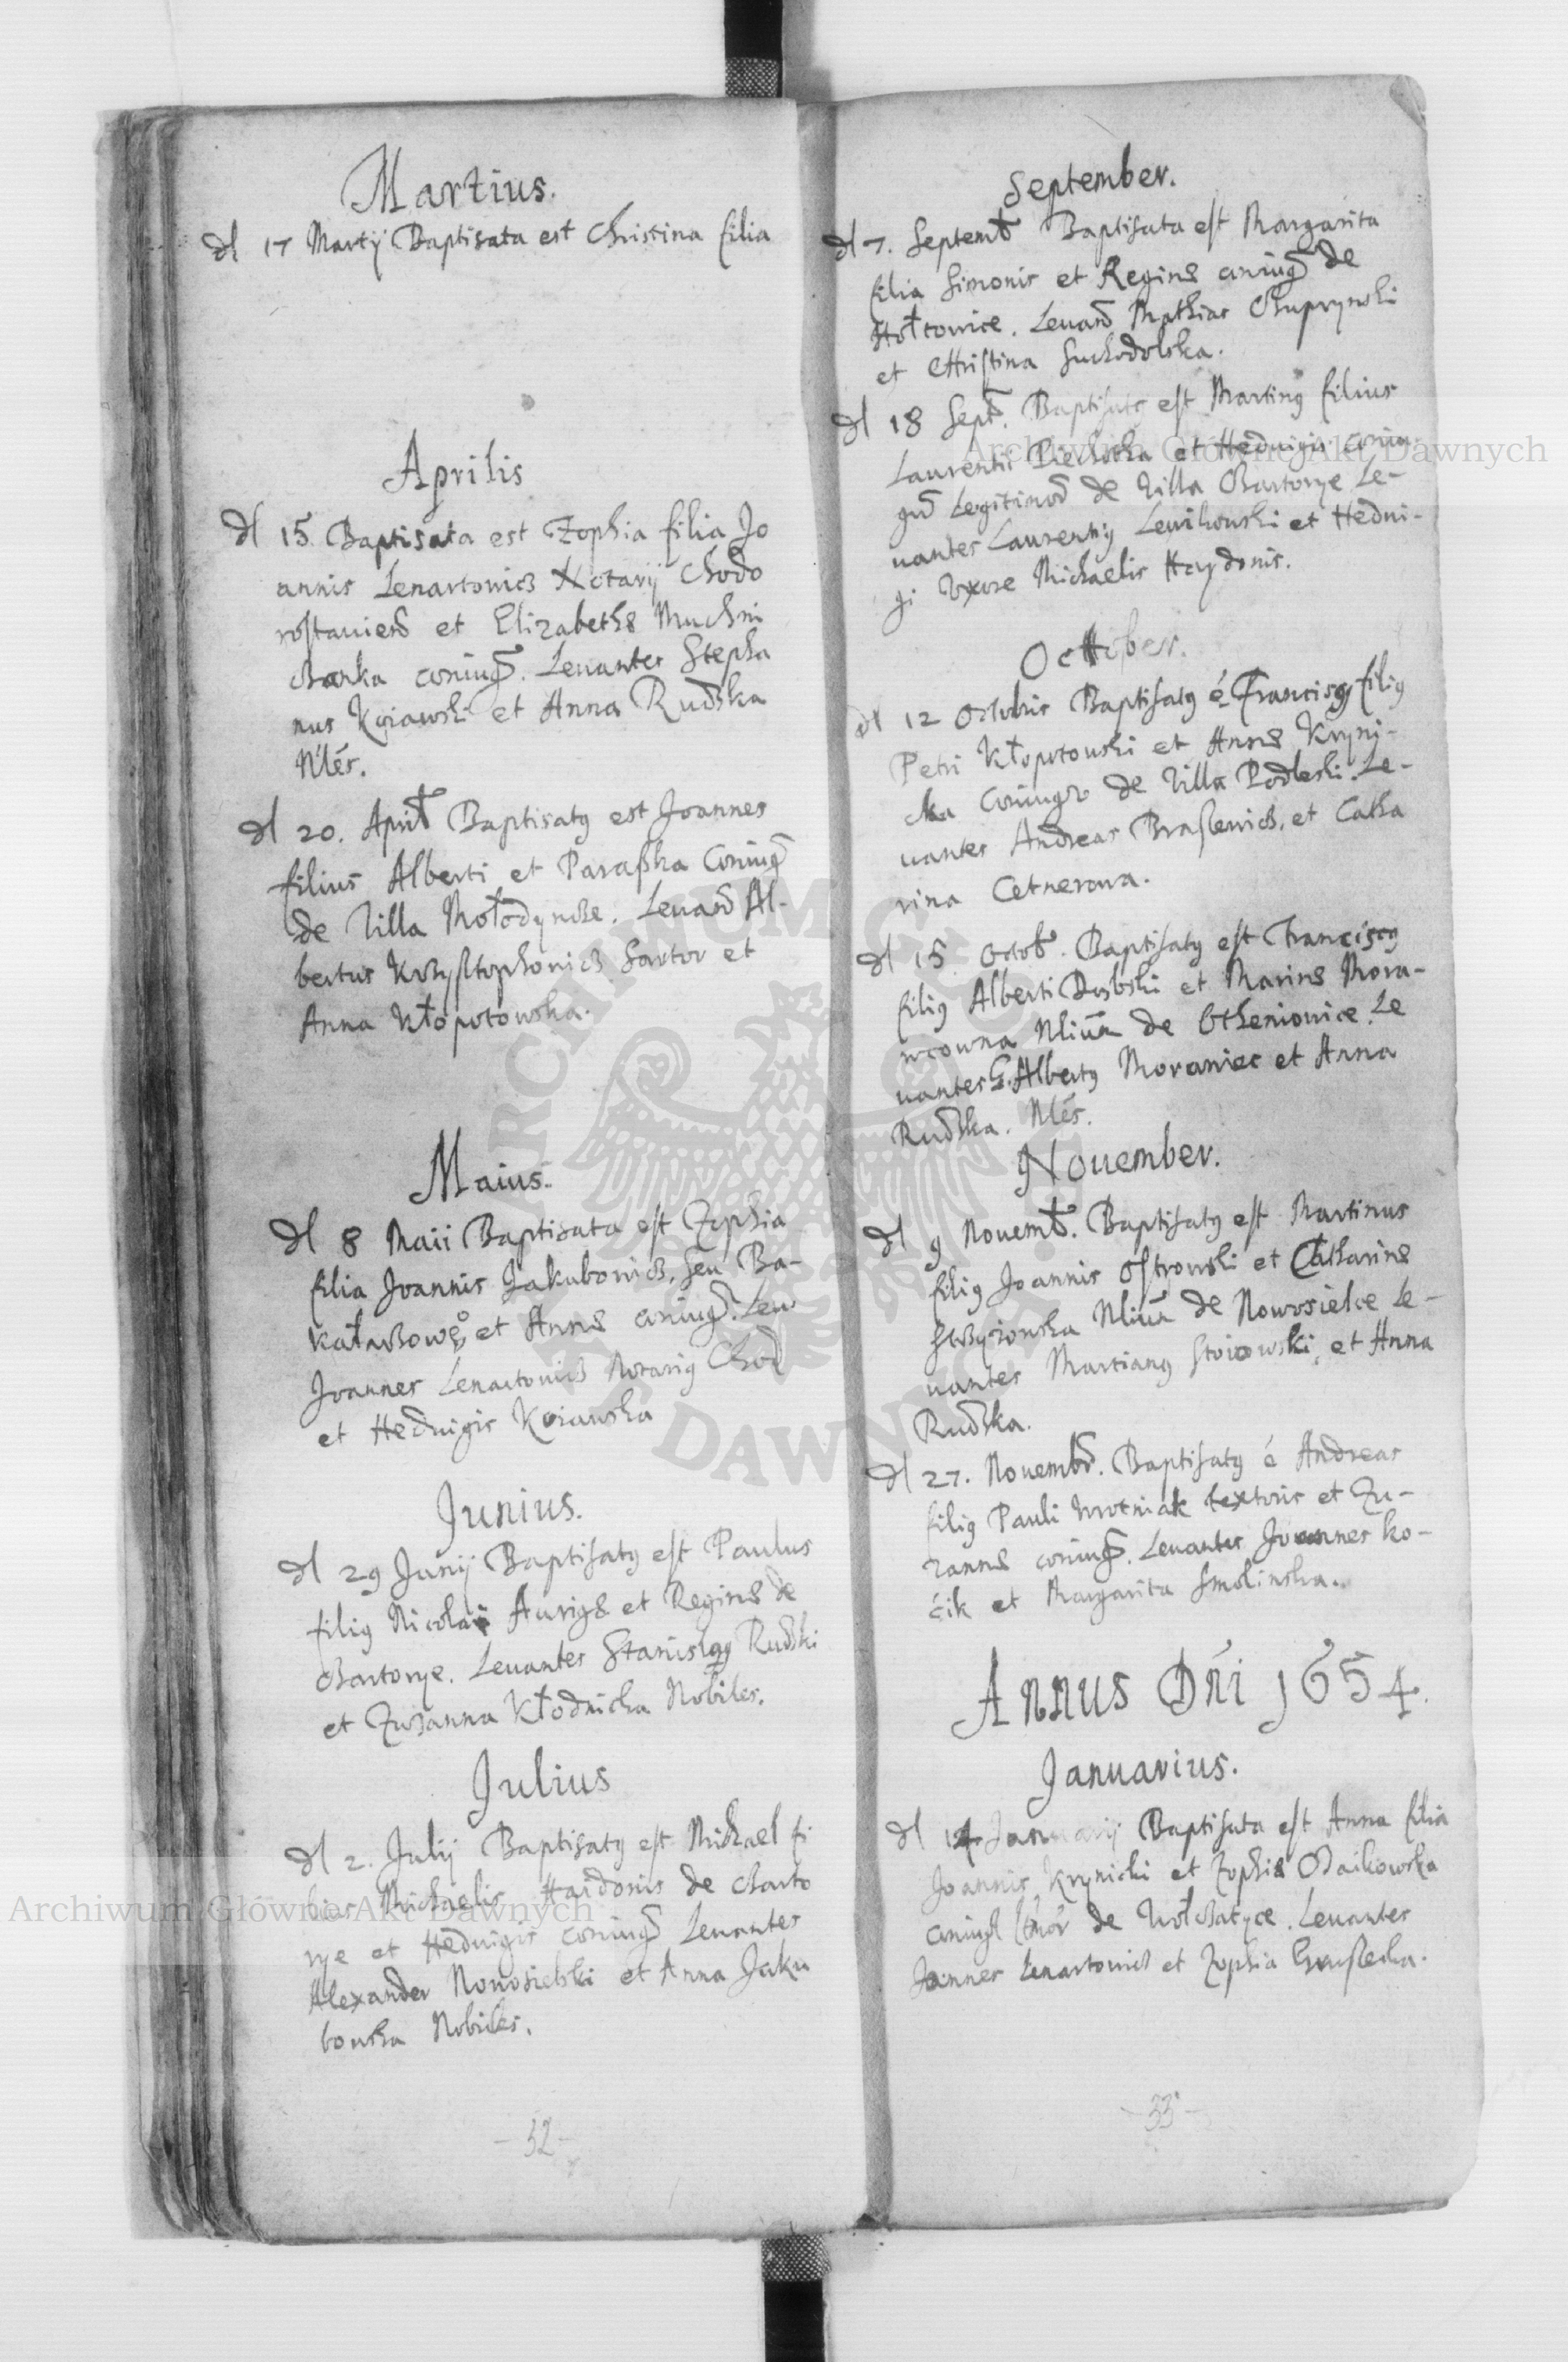 Martius.
dl 17 Martij Baptisata est Christina filia
Aprilis
dl 15 Baptisata est Zophia filia Jo
annis Lenartowicz Notarij Chodo
rostaviens et Elizabethæ Muchni
czanka coniug. Leuantes Stepha
nus Kuiawski et Anna Rudska
N'lés.
dl 20. April Baptisaty est Joannes
filius Alberti et Paraszka Coniug
de Villa Mołodyncze. Leuand Al-
bertus Krzysztophowicz Sartor et
Anna Kłopotowska.
Maius.
dl 8 Maii Baptisata est Zophia
filia Joannis Jakubowicz, seu Ba-
et Annæ coniug. Leu
Joannes Lenartowicz Notariq Chod
et Heduigis Kuiawska
Junius.
dl 29 Junij Baptisatq est Paulus
filiq Nicolai Aurigæ et Reginæ de
Bartorye. Leuantes Stanislaq Rudski
et Zuzanna Kłodnicka Nobiles.
Julius
dl 2. Julij Baptisatq est Michael fi
lius Michaelis Haidonis de Barto
rye et Heduigis coniug Leuantes
Alexander Nowosielski et Anna Jaku
bowska Nobiles.
- 32 -
September.
dl 7. Septemb Baptisata est Margarita
filia Simonis et Reginæ coniug de
Hołcowice. Leuand Mathias Chuprynski
et Christina Suchodolska.
dl 18 Sept. Baptisatq est Martinq filius
Laurentii et Heduigis coniu
gu Legitimor de Villa Bartorye Le-
uantes Laurentiq Lewikowski et Hedui-
gi Vxore Michaelis Haydonis.
October.
dl 12 Octobris Baptisatq é Franciscq filiq
Petri Kłopotowski et Annæ Kryni-
cka Coniugu de Villa Podleski. Le-
uantes Andreas Braszewicz, et Catha
rina Cetnerowa.
dl 15 Octob. Baptisatq est Franciscq
filiq Alberti et Marinæ Mora-
wcowna Nliũm de Otheniowice. Le
uantes G. Albertq Morawiec et Anna
Rudska. Nlés.
November.
dl 9 Nouemb. Baptisatq est Martinus
filiq Joannis Ostrowski et Catharinæ
Nliũm de Nowosielce Le-
uantes Martianq Stoiowski, et Anna
Rudska.
dl 27. Nouembr. Baptisatq é Andreas
filiq Pauli Wrotniak textoris et Zu-
zannæ coniug. Leuantes Joannes Ko-
cik et Margarita Smolinska.
Annus Dñi 1654.
Januarius.
dl 14 Januarij Baptisata est Anna filia
Joannis Krynicki et Zophiæ Odaikowska
coniug ltmór de Wołczatyce. Leuantes
Joannes Lenartowicz et Zophia
- 33 -
Archiwum Główne Akt Dawnych
Archiwum Główne Akt Dawnych
ARCHIWUM GŁÓWNE AKT DAWNYCH